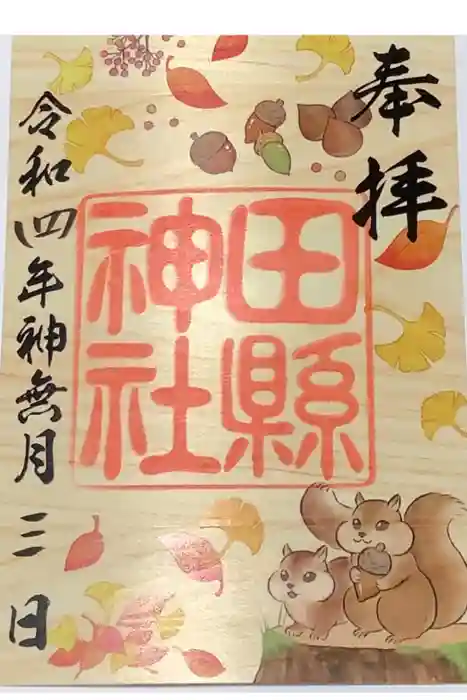 奉拝
田縣
神社
令和四年神無月三日